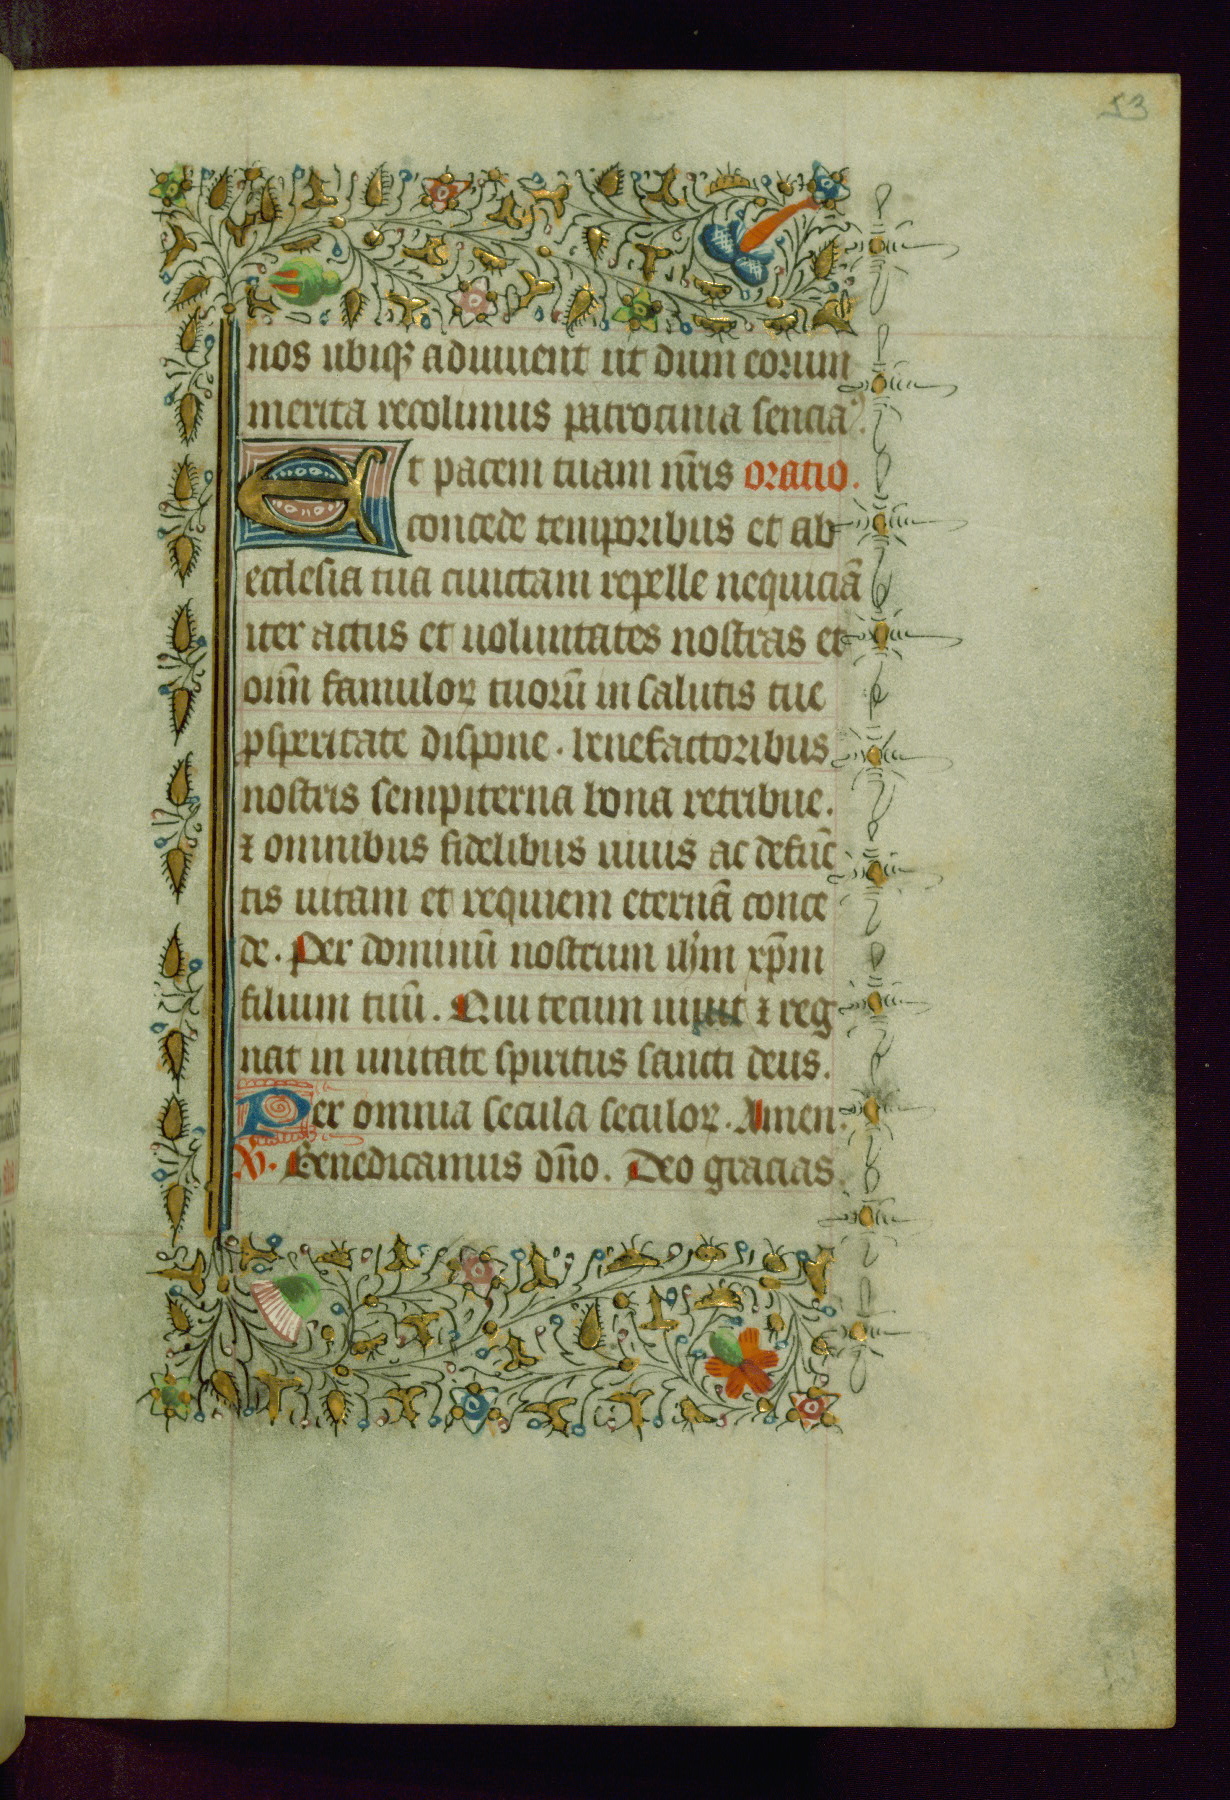 53
nos ubiqꝫ adiuuent ut dum eorum
merita recolimus patrocinia sencia⁹.
Et pacem tuam nr̄is oratio.
concede temporibus et ab
ecclesia tua cunctam repelle nequiciā
iter actus et uoluntates nostras et
oīm famuloꝝ tuorū in salutis tue
ꝓsperitate dispone. benefactoribus
nostris sempiterna bona retribue.
⁊ omnibus fidelibus uiuis ac defūc
tis uitam et requiem eternā conce
de. Per dominū nostrum ihm̄ xp̄m
filium tuū. Qui tecum uiuit ⁊ reg
nat in unitate spiritus sancti deus.
Per omnia secula seculoꝝ. Amen.
V. Benedicamus dn̄o. Deo gracias